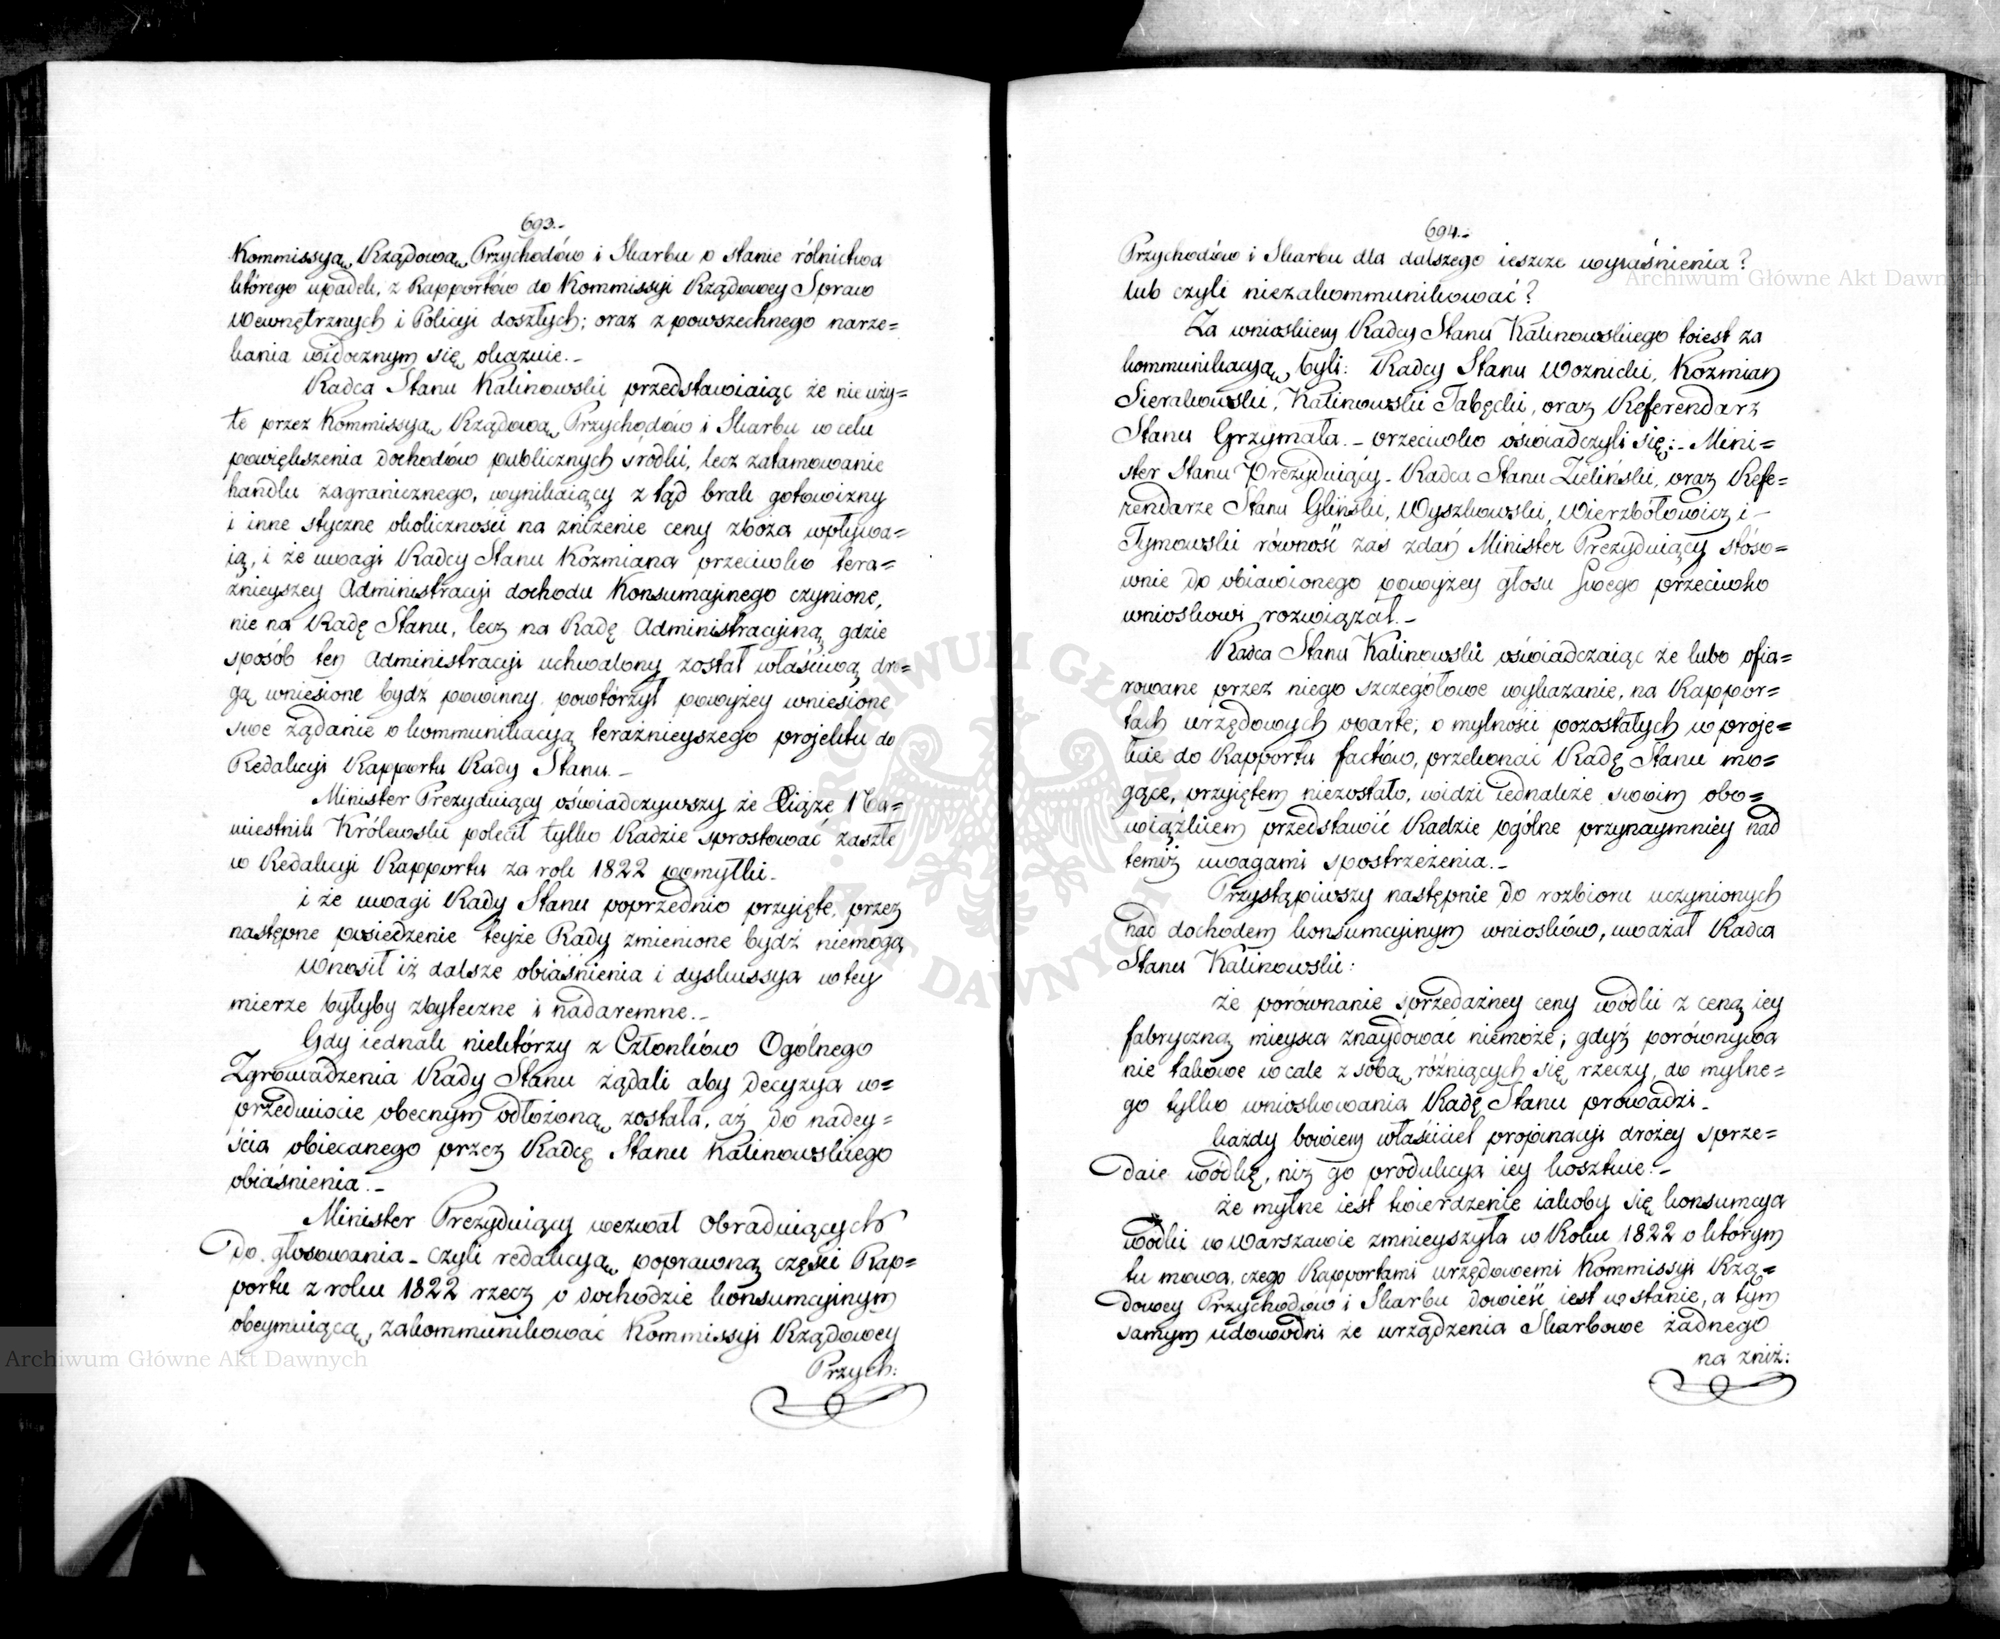 693.-
Kommissyą Rządową Przychodów i Skarbu o stanie rólnictwa
którego upadek, z Rapportów do Kommissyi Rządowey Spraw
Wewnętrznych i Policyi doszłych; oraz z powszechnego narze=
kania widocznym się okazuie.-
Radca Stanu Kalinowski przedstawiaiąc że nie uży=
te przez Kommissyą Rządową Przychodów i Skarbu w celu
powiększenia dochodów publicznych śródki, lecz zatamowanie
handlu zagranicznego, wynikaiący z tąd brak gotowizny
i inne styczne okoliczności na zniżenie ceny zboża wpływa=
ią, i że uwagi Radcy Stanu Kozmiana przeciwko tera=
znieyszey Administracyi dochodu Konsumcyinego czynione,
nie na Radę Stanu, lecz na Radę Administracyiną gdzie
sposób ten Administracyi uchwalony został właściwą dro=
gą wniesione bydź powinny powtórzył powyżey wniesione
swe żądanie o kommunikacyą teraznieyszego projektu do
Redakcyi Rapportu Rady Stanu.-
Minister Prezyduiący oświadczywszy że Xiąże Na=
miestnik Królewski polecił tylko Radzie sprostować zaszłe
w Redakcyi Rapportu za rok 1822 pomyłki.-
i że uwagi Rady Stanu poprzednio przyięte, przez
następne posiedzenie teyże Rady zmienione bydź niemogą
Wnosił iż dalsze obiaśnienia i dyskussya w tey
mierze byłyby zbyteczne i nadaremne.-
Gdy iednak niektórzy z Członków Ogólnego
Zgromadzenia Rady Stanu żądali aby decyzya w=
przedmiocie obecnym odłożoną została, aż do nadey=
ścia obiecanego przez Radcę Stanu Kalinowskiego
obiaśnienia.-
Minister Prezyduiący wezwał Obraduiących
do głosowania - Czyli redakcyą poprawną części Rap=
portu z roku 1822 rzecz o dochodzie konsumcyinym
obeymuiącą, zakommunikować Kommissyi Rządowey
Przych:
694.-
Przychodów i Skarbu dla dalszego ieszcze wyiaśnienia?
lub czyli niezakommunikować?
Za wnioskiem Radcy Stanu Kalinowskiego toiest za
kommunikacyą, byli: Radcy Stanu Woznicki, Kozmian
Sierakowski, Kalinowski Tabęcki, oraz Referendarz
Stanu Grzymała.- przeciwko oświadczyli się:- Mini=
ster Stanu Prezyduiący - Radca Stanu Zieliński, oraz Refe=
rendarze Stanu Gliński, Wyszkowski, Wierzbołowicz i -
Tymowski równość zaś zdań Minister Prezyduiący stóso=
wnie do obiawionego powyżey głosu Swego przeciwko
wnioskowi rozwiązał.-
Radca Stanu Kalinowski oświadczaiąc że lubo ofia=
rowane przez niego szczegółowe wykazanie, na Rappor=
tach urzędowych oparte, o mylności pozostałych w proje=
kcie do Rapportu factów, przekonać Radę Stanu mo=
gące, przyiętem niezostało, widzi iednakże swoim obo=
wiązkiem przedstawić Radzie ogólne przynaymniey nad
temiż uwagami spostrzeżenia.-
Przystąpiwszy następnie do rozbioru uczynionych
nad dochodem konsumcyinym wniosków, uważał Radca
Stanu Kalinowski:
że porównanie sprzedażney ceny wódki z ceną iey
fabryczną mieysca znaydować niemoże; gdyż porównywa
nie takowe wcale z sobą różniących się rzeczy, do mylne=
go tylko wnioskowania Radę Stanu prowadzi.-
każdy bowiem właściciel propinacyi drożey sprze=
daie wódkę, niż go produkcya iey kosztuie.-
że mylne iest twierdzenie iakoby się konsumcya
wódki w Warszawie zmnieyszyła w Roku 1822 o którym
tu mowa, czego Rapportami urzędowemi Kommissyi Rzą=
dowey Przychodów i Skarbu dowieść iest w stanie, a tym
samym udowodni że urządzenia Skarbowe żadnego
na zniż:
Archiwum Główne Akt Dawnych
Archiwum Główne Akt Dawnych
ARCHIWUM GŁÓWNE AKT DAWNYCH